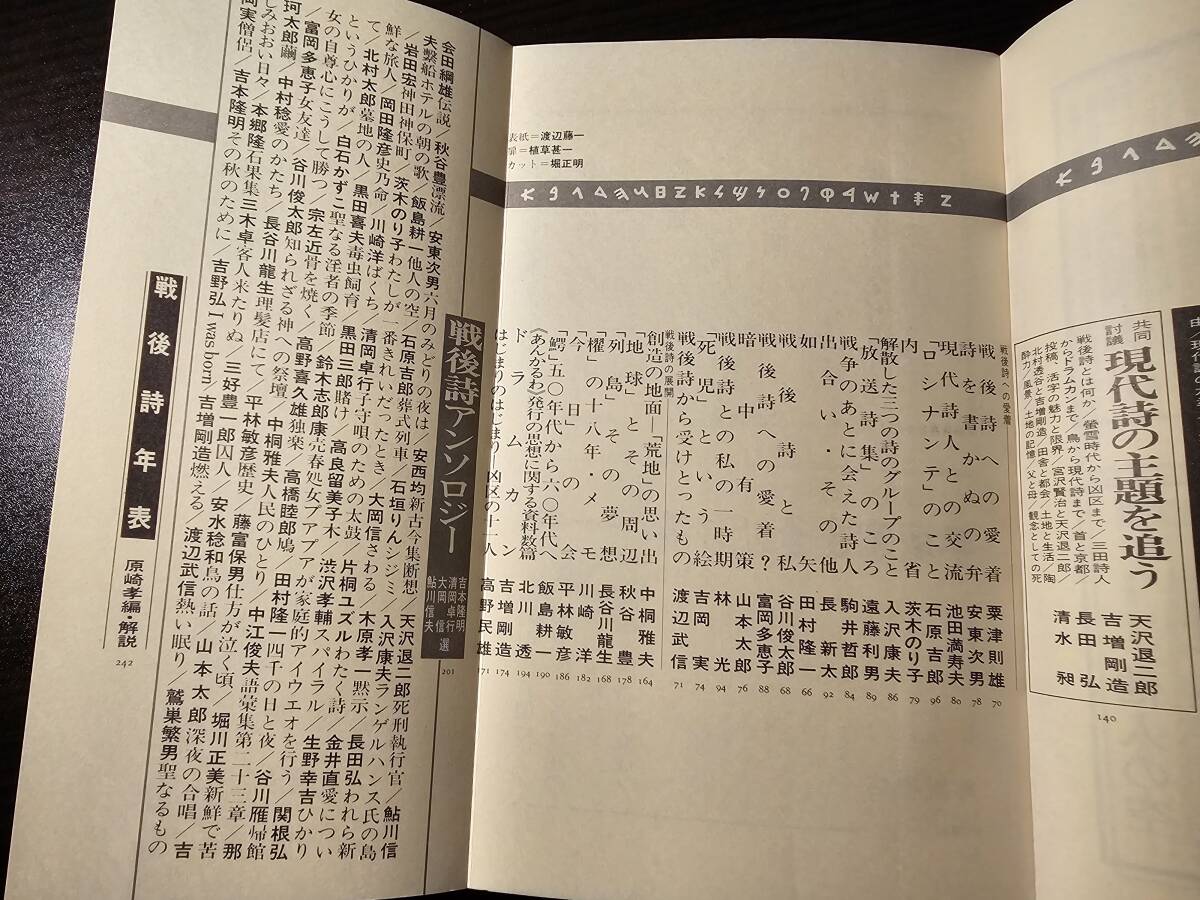 共同
討議
現代詩の主題を追う
戦後詩とは何か／螢雪時代から凶区まで／三田詩人
からドラムカンまで／鳥から現代詩まで／首と京都
投稿、活字の魅力と限界／宮沢賢治と天沢退二郎／
北村透谷と吉増剛造／田舎と都会／土地と生活／陶
酔力／風景／土地の記憶／父と母／観念としての死
天沢退二郎
吉増剛造
長田弘
清水昶
140
表紙=渡辺藤一
扉=植草甚一
カット=堀正明
戦後詩への愛着
戦後詩への愛着 粟津則雄 70
詩を書かぬの弁 安東次男 78
現代詩人との交流 池田満寿夫 80
「ロシナンテ」のこと 石原吉郎 96
内省 茨木のり子 79
解散した三つの詩のグループのこと 入沢康夫 86
「放送詩集」のころ 遠藤利男 89
戦争のあとに会えた詩人 駒井哲郎 84
出合い・その他 長新太 92
如矢 田村隆一 66
戦後詩と私 谷川俊太郎 68
戦後詩への愛着? 富岡多恵子 88
暗中有策 山本太郎 76
戦後詩と私の一時期 林光 91
「死児」という絵 吉岡実 74
戦後詩から受けとったもの 渡辺武信 71
戦後詩の展開
創造の地面—「荒地」の思い出 中桐雅夫 164
「地球」とその周辺 秋谷豊 178
「列島」の夢想 長谷川龍生 168
「櫂」の十八年・メモ 川崎洋 182
「今日」の会 平林敏彦 186
「鰐」五〇年代から六〇年代へ 飯島耕一 190
《あんかるわ》発行の思想に関する資料数篇 北川透 194
ドラムカン 吉増剛造 174
はじまりのはじまり 凶区の十一人 高野民雄 171
戦後詩アンソロジー
吉本隆明
清岡卓行
大岡信
鮎川信夫
選
201
会田綱雄伝説／秋谷豊漂流／安東次男六月のみどりの夜は／安西均新古今集断想／天沢退二郎死刑執行官／鮎川信
夫繋船ホテルの朝の歌／飯島耕一他人の空／石原吉郎葬式列車／石垣りんシジミ／入沢康夫ランゲルハンス氏の島
／岩田宏神田神保町／茨木のり子わたしが一番きれいだったとき／大岡信さわる／木原孝一黙示／長田弘われら新
鮮な旅人／岡田隆彦史乃命／川崎洋ばくち／清岡卓行子守唄のための太鼓／片桐ユズルわたく詩／金井直愛につい
て／北村太郎墓地の人／黒田喜夫毒虫飼育／黒田三郎賭け／高良留美子木／渋沢孝輔スパイラル／生野幸吉ひかり
というひかりが／白石かずこ聖なる淫者の季節／鈴木志郎康売春処女プアプアが家庭的アイウエオを行う／関根弘
女の自尊心にこうして勝つ／宗左近骨を焼く／高野喜久雄独楽／高橋睦郎鳩／田村隆一四千の日と夜／谷川雁帰館
／富岡多恵子女友達／谷川俊太郎知られざる神への祭壇／中桐雅夫人民のひとり／中江俊夫語彙集第二十三章／那
珂太郎繭／中村稔愛のかたち／長谷川龍生理髪店にて／平林敏彦歴史／藤富保男仕方が泣く頃／堀川正美新鮮で苦
しみおおい日々／本郷隆石果集／三木卓客人来たりぬ／三好豊一郎囚人／安水稔和鳥の話／山本太郎深夜の合唱／吉
岡実僧侶／吉本隆明その秋のために／吉野弘I was born／吉増剛造燃える／渡辺武信熱い眠り／鷲巣繁男聖なるもの
戦後詩年表
原崎孝編・解説
242